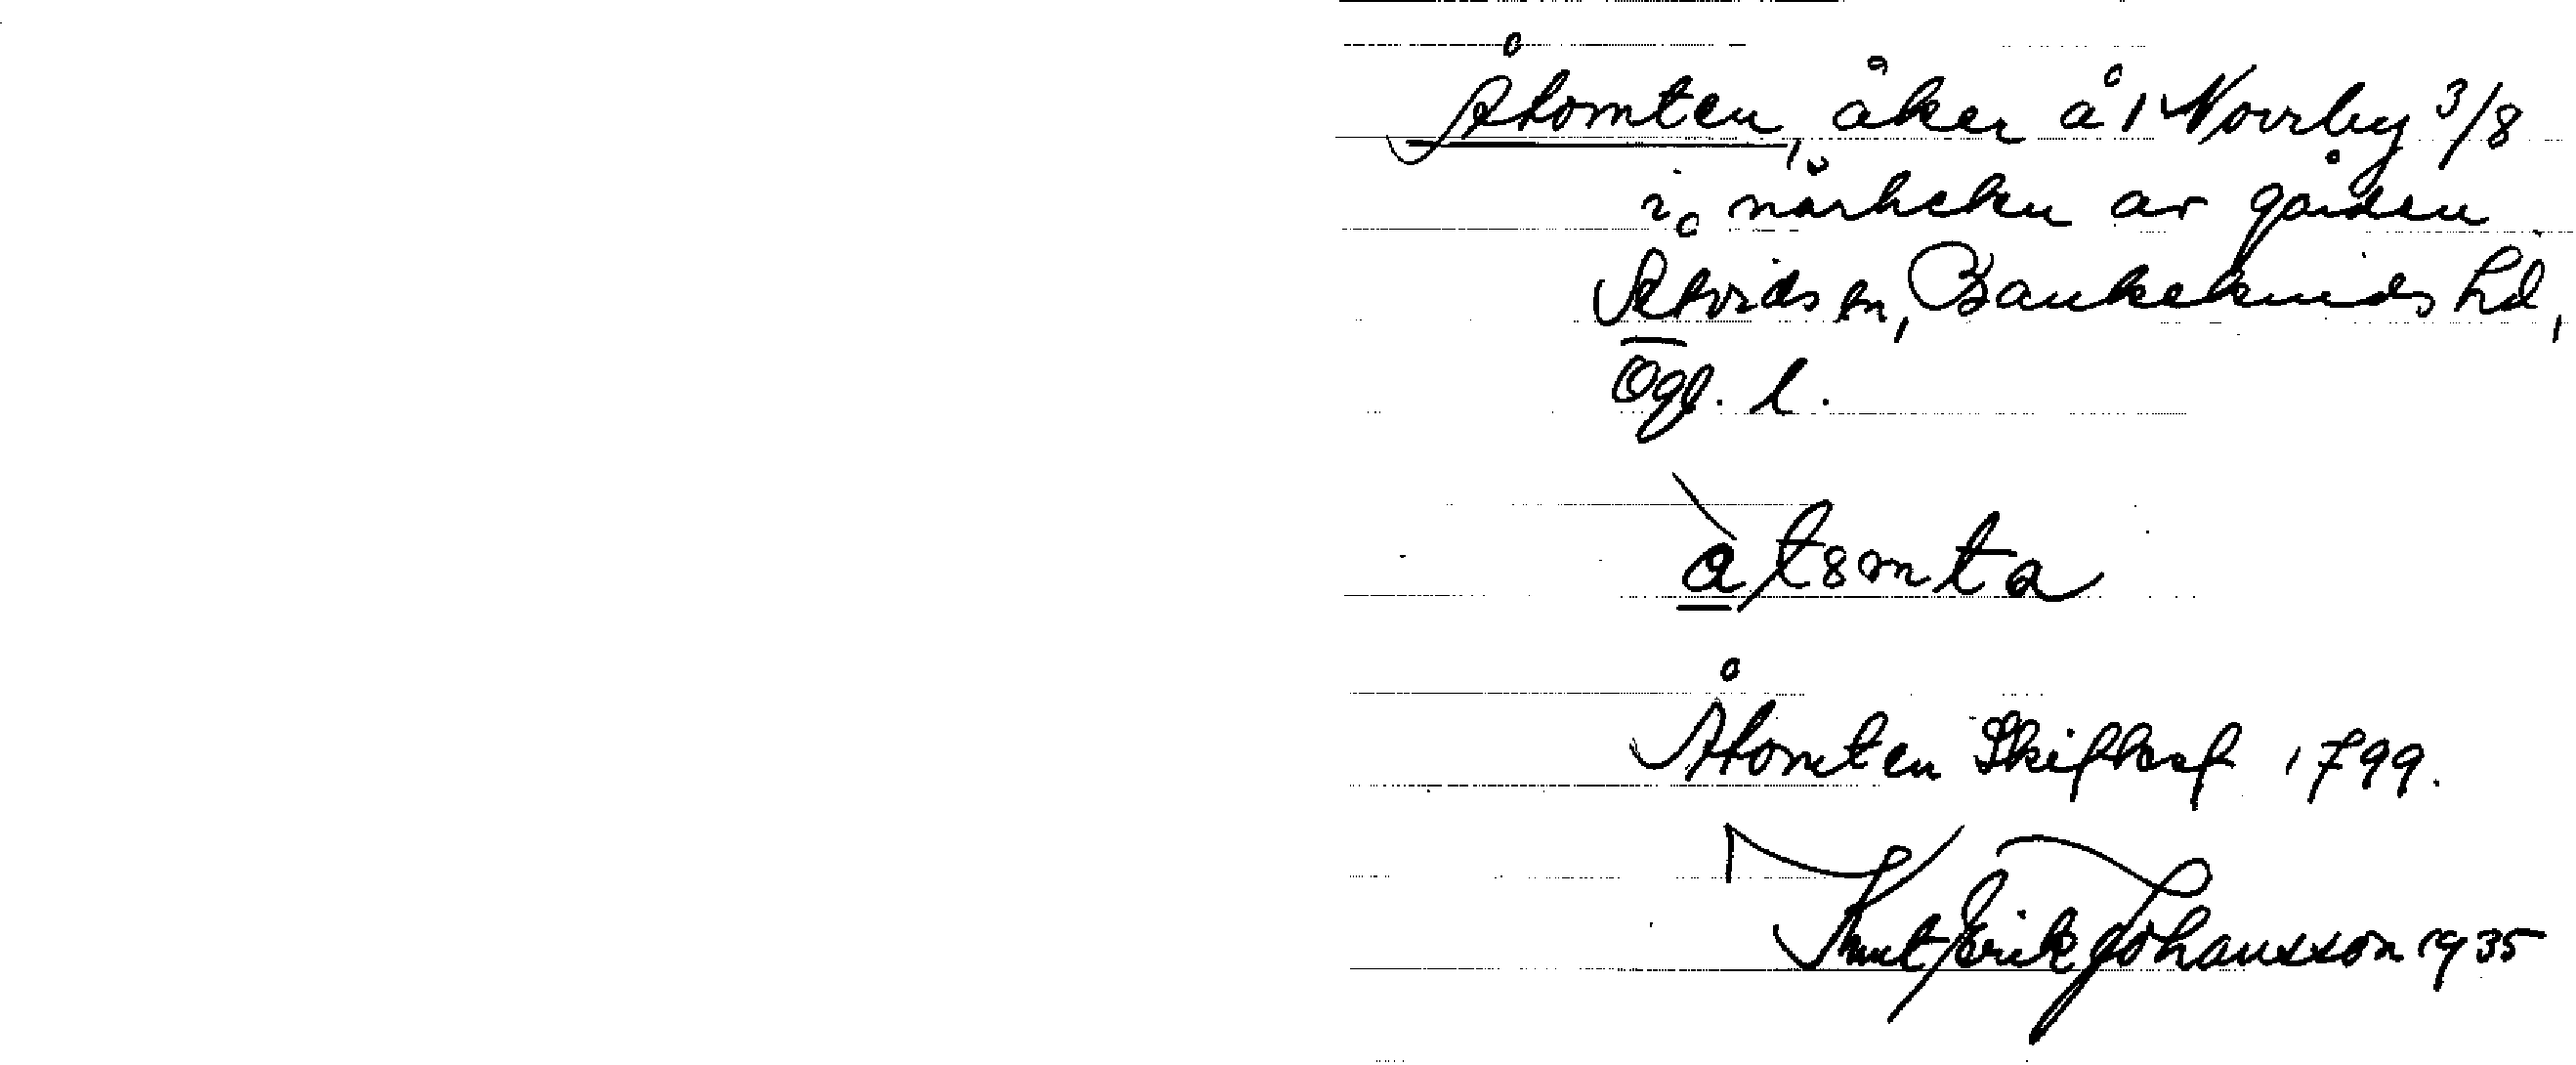 Åtomten, åker å Norrby 3/8
i närheten av gården
Åtvids sn, Bankekinds hd,
Ögl. l.
åtomta
Åtomten Skifteskf 1799.
Knut Erik Johansson 1935